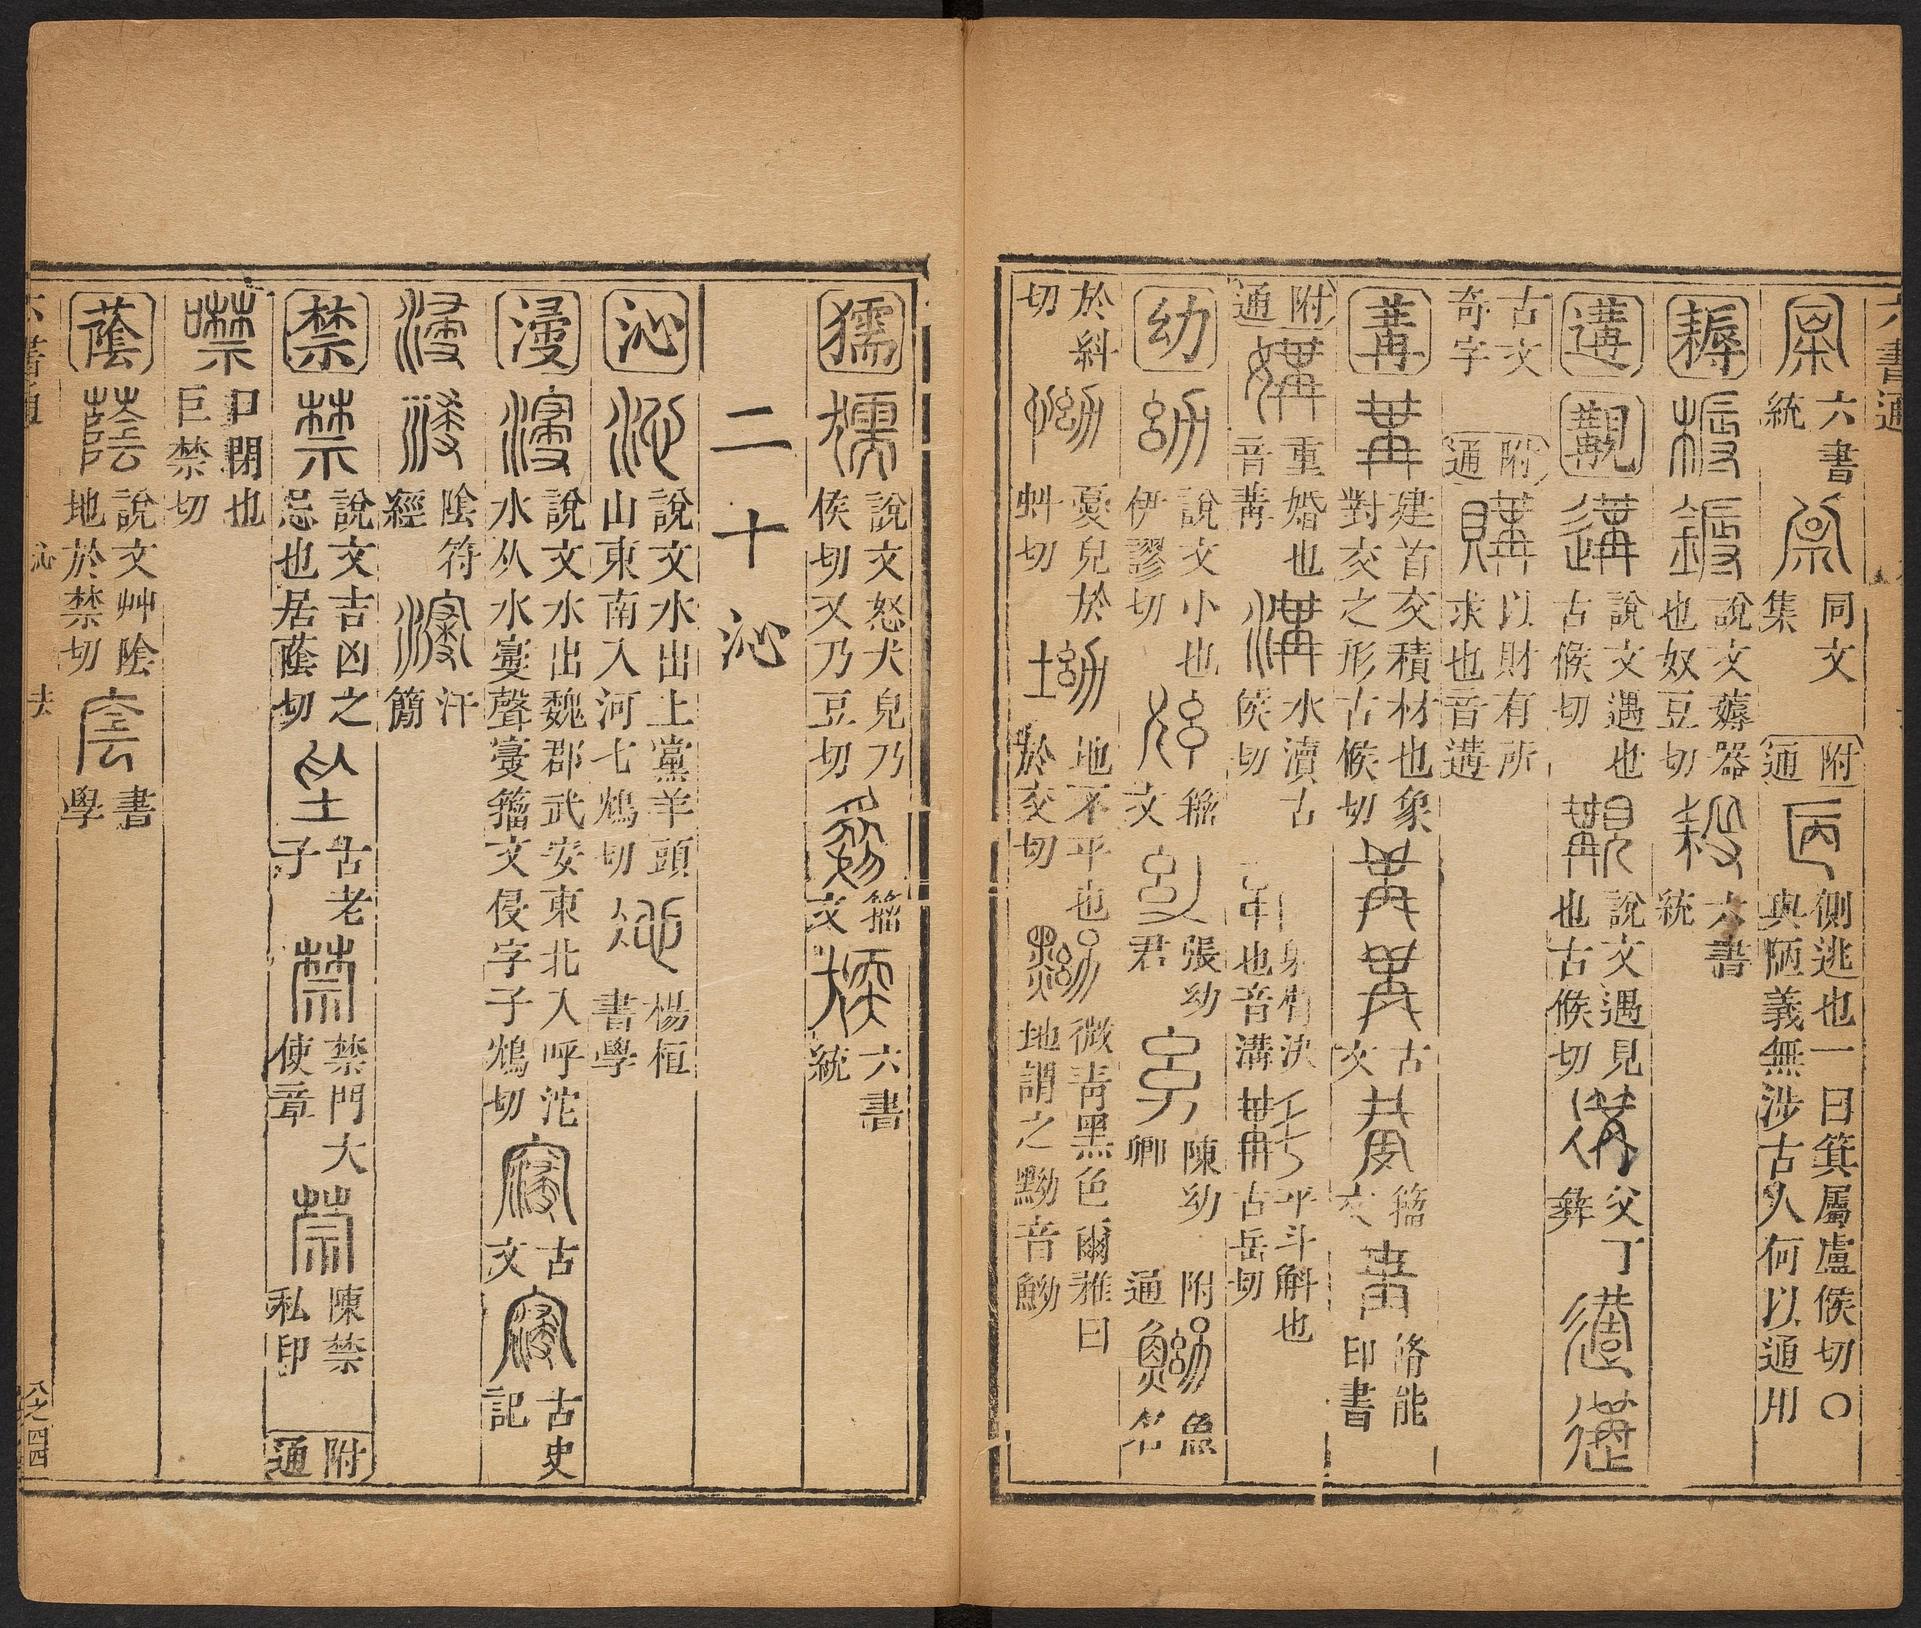 六書通
六書統 同文集 附通 側逃也一曰箕屬盧候切〇與陋義無涉古人何以通用
耨 說文薅器也奴豆切 六書統
遘 覯 說文遇也古候切 說文遇見也古候切 父丁彝
古文奇字 附通 購 以財有所求也音遘
冓 建首交積材也象對交之形古候切 古文 籀文 脩能印書
附通 媾 重婚也音冓 溝 水瀆古侯切 也音溝 平斗斛也古岳切
幼 說文小也伊謬切 繇文 張幼君 陳幼卿 附通 魚名
於糾切 憂皃於虯切 地不平也於交切 微青黑色爾雅曰地謂之黝音鮋
獳 說文怒犬皃乃侯切又乃豆切 籀文 六書統
二十沁
沁 說文水出上黨羊頭山東南入河七鴆切 楊桓書學
濅 說文水出魏郡武安東北入呼沱水从水㝲聲㝲籀文侵字子鴆切 古文 古史記
陰符經 汗簡
禁 說文吉凶之忌也居蔭切 古老子 禁門大使章 陳禁私印 附通
噤 口閉也巨禁切
蔭 說文艸陰地於禁切 書學
六書通 沁 去 八之四四